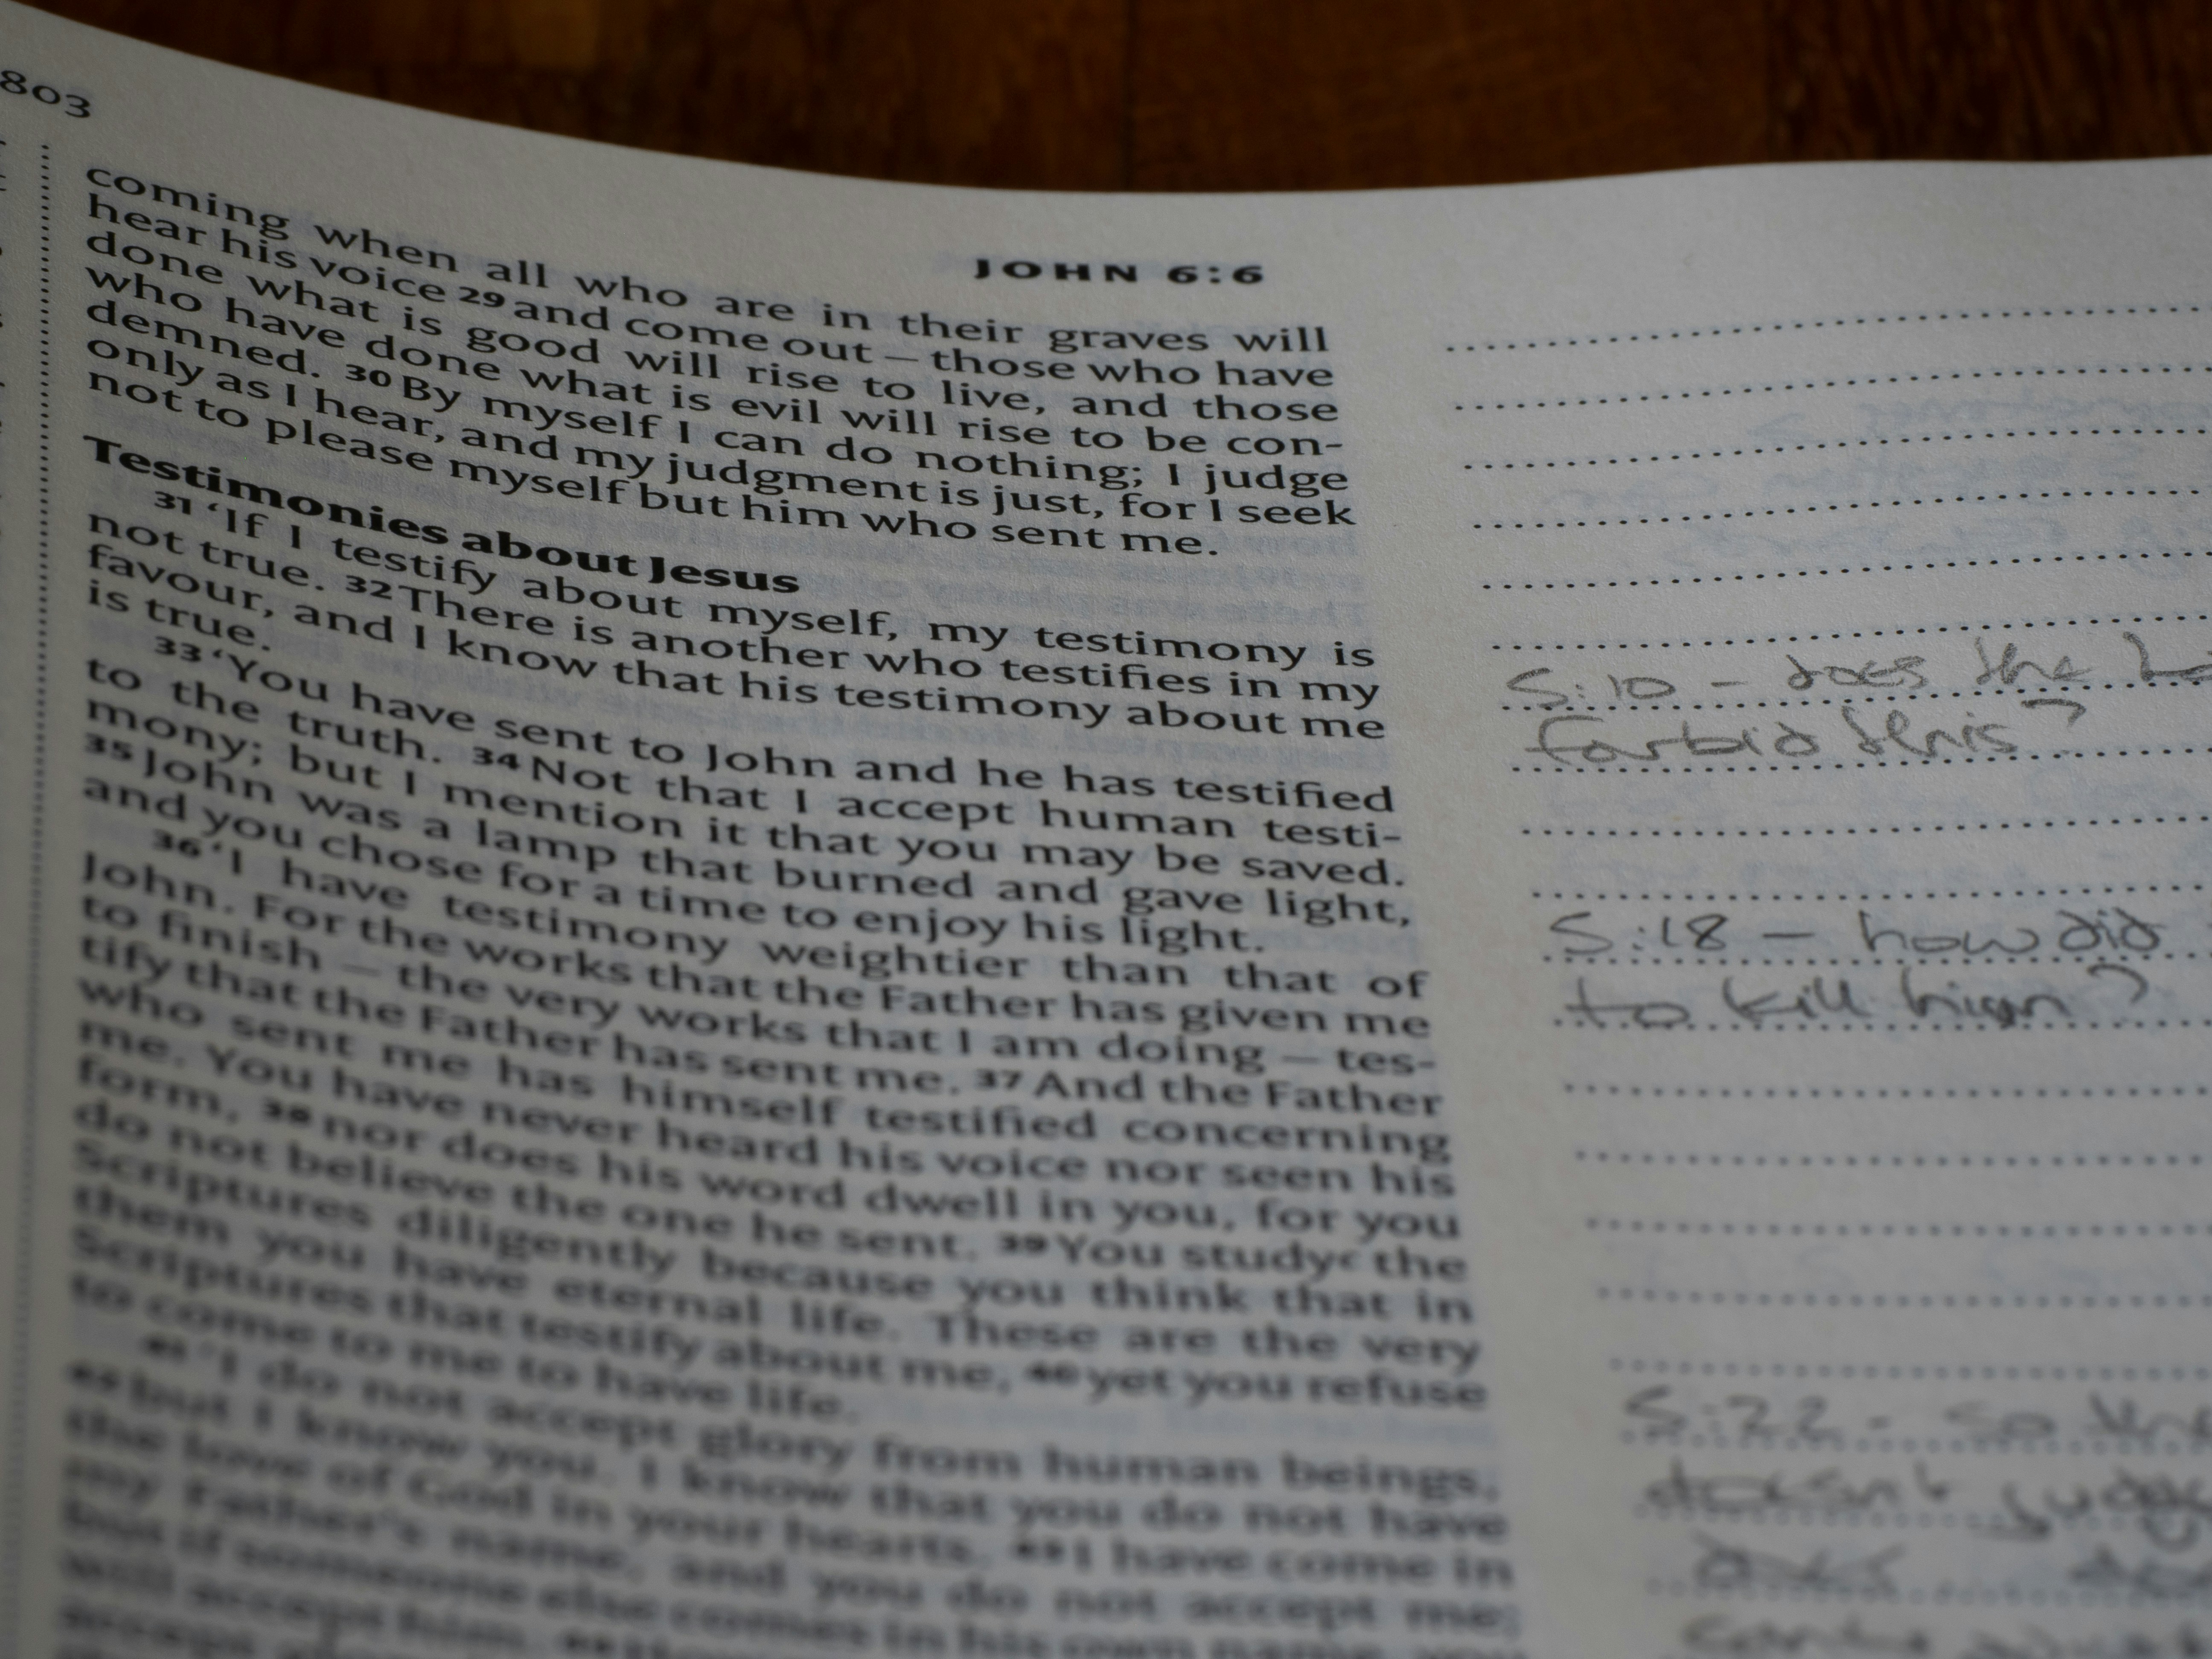 803
JOHN 6:6
coming when all who are in their graves will
hear his voice 29 and come out – those who have
done what is good will rise to live, and those
who have done what is evil will rise to be con-
demned. 30 By myself I can do nothing; I judge
only as I hear, and my judgment is just, for I seek
not to please myself but him who sent me.
Testimonies about Jesus
31 ‘If I testify about myself, my testimony is
not true. 32 There is another who testifies in my
favour, and I know that his testimony about me
is true.
33 ‘You have sent to John and he has testified
to the truth. 34 Not that I accept human testi-
mony; but I mention it that you may be saved.
35 John was a lamp that burned and gave light,
and you chose for a time to enjoy his light.
36 ‘I have testimony weightier than that of
John. For the works that the Father has given me
to finish – the very works that I am doing – tes-
tify that the Father has sent me. 37 And the Father
who sent me has himself testified concerning
me. You have never heard his voice nor seen his
form, 38 nor does his word dwell in you, for you
do not believe the one he sent. 39 You study c the
Scriptures diligently because you think that in
them you have eternal life. These are the very
Scriptures that testify about me, 40 yet you refuse
to come to me to have life.
41 ‘I do not accept glory from human beings,
42 but I know you. I know that you do not have
the love of God in your hearts. 43 I have come in
my Father's name, and you do not accept me;
but if someone else comes in his own name, you
will accept him.
5:10 – does the
forbid this?
5:18 – how did
to kill him?
5:22 - so the
doesn't judge